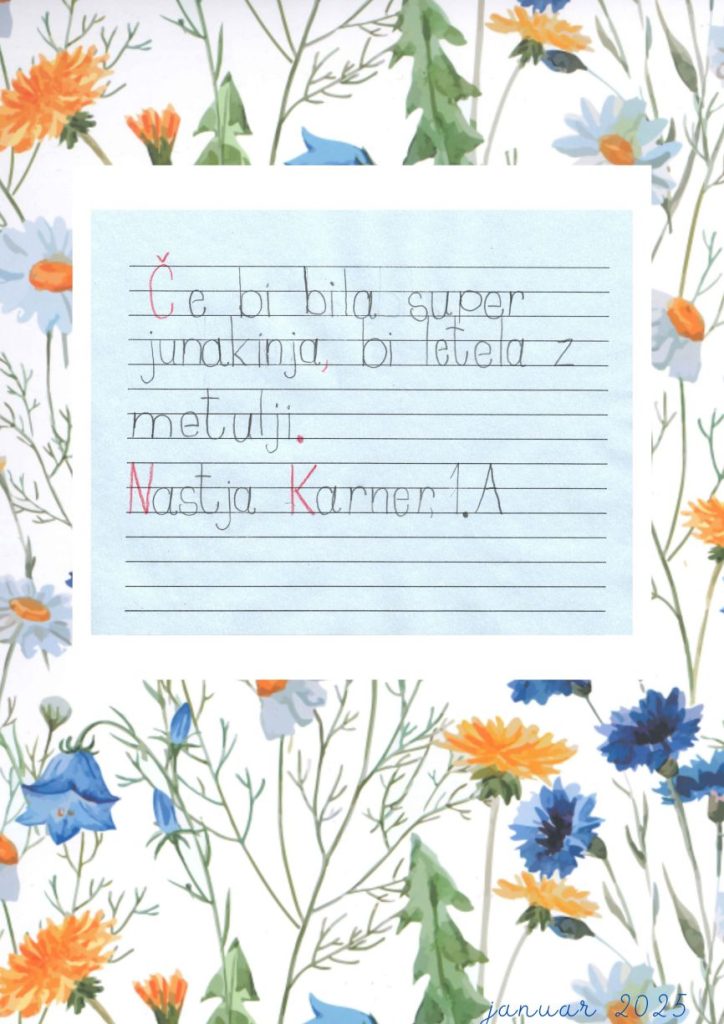 Če bi bila super
junakinja, bi letela z
metulji.
Nastja Karner, 1.A
januar 2025